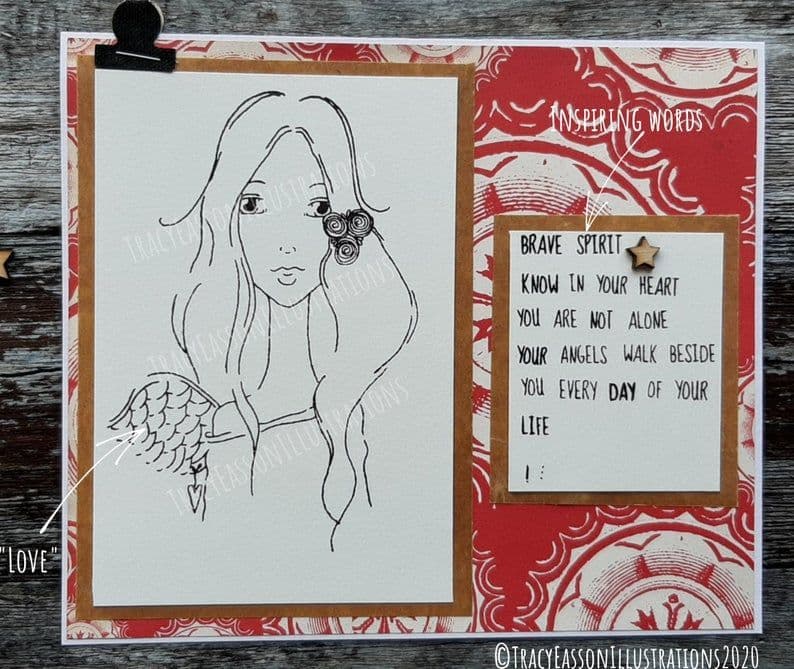 Inspiring words
BRAVE SPIRIT
KNOW IN YOUR HEART
YOU ARE NOT ALONE
YOUR ANGELS WALK BESIDE
YOU EVERY DAY OF YOUR
LIFE
TracyEassonIllustrations
TracyEassonIllustrations
TracyEassonIllustrations
"Love"
©TracyEassonIllustrations2020